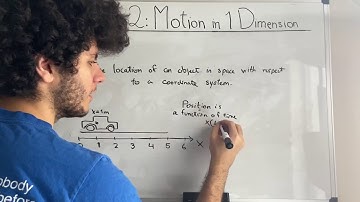 2: Motion in 1 Dimension
location of an object in space with respect
to a coordinate system.
Position is
a function of time
x(
x=1m
0 1 2 3 4 5 6 X
obody
before